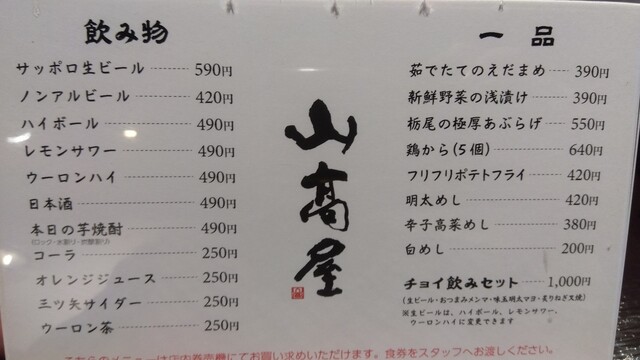 飲み物
サッポロ生ビール 590円
ノンアルビール 420円
ハイボール 490円
レモンサワー 490円
ウーロンハイ 490円
日本酒 490円
本日の芋焼酎 490円
(ロック・水割り・炭酸割り)
コーラ 250円
オレンジジュース 250円
三ツ矢サイダー 250円
ウーロン茶 250円
山髙屋
一品
茹でたてのえだまめ 390円
新鮮野菜の浅漬け 390円
栃尾の極厚あぶらげ 550円
鶏から(5個) 640円
フリフリポテトフライ 420円
明太めし 420円
辛子高菜めし 380円
白めし 200円
チョイ飲みセット 1,000円
(生ビール・おつまみメンマ・味玉明太マヨ・炙りねぎ叉焼)
※生ビールは、ハイボール、レモンサワー、
ウーロンハイに変更できます
こちらのメニューは店の券売機にてお買い求めいただけます。食券をスタッフへお渡しください。